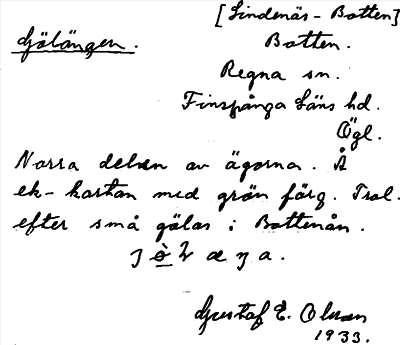 [Lindenäs-Botten]
Gölängen.
Botten.
Regna sn.
Finspånga läns hd.
Ögl.
Norra delen av ägorna. Å
ek-kartan med grön färg. Trol.
efter små gölar i Bottenån.
Gustaf E. Olsson
1933.